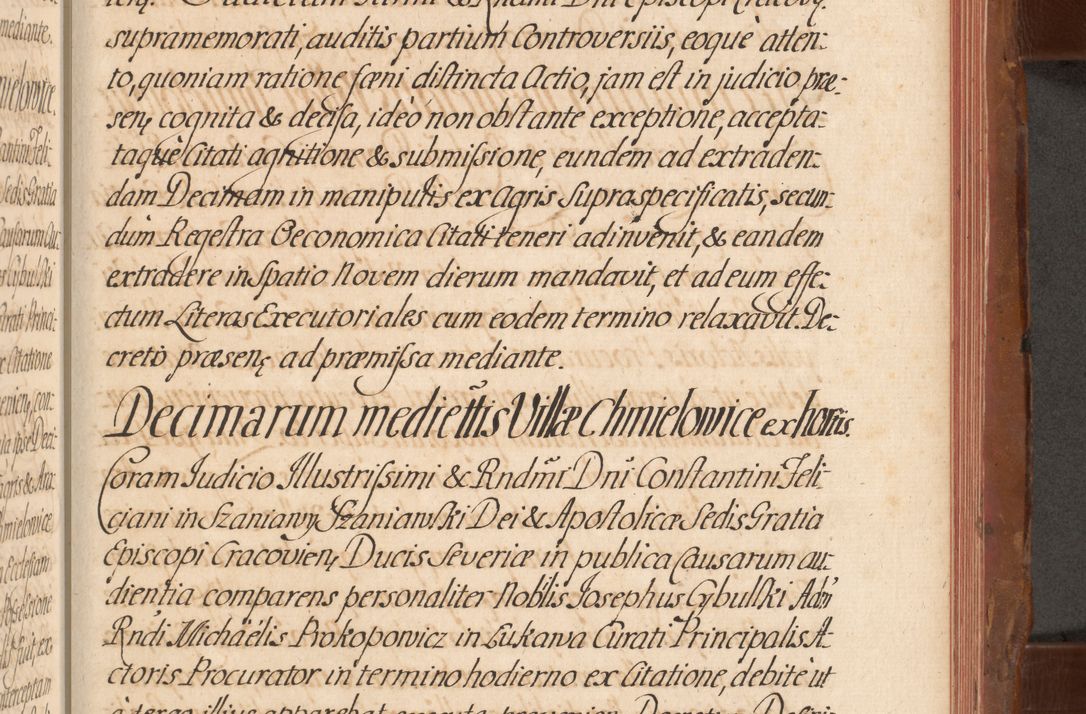 supramemorati, auditis partium Controversiis, eoque atten:
to, quoniam ratione fæni distincta Actio, jam est in judicio præ-
sen, cognita & decisa, ideò non obstante exceptione, accepta:
taquè Citati agnitione & submissione, eundem ad extraden:
dam Decimam in manipulis ex Agris Supraspecificatis, secun:
dùm Regestra Oeconomica Citati teneri adinvenit, & eandem
extradere in Spatio Novem dierum mandavit, et ad eum effe:
ctum Literas Executoriales cum eodem termino relaxavit. De:
creto præsen, ad præmissa mediante.
Decimarum mediett̃is Villæ Chmielowice ex hortis.
Coram Judicio Illustrissimi & Rndm̃i Dnĩ Constantini Feli-
ciani in Szaniawy Szaniawski Dei & Apostolicæ Sedis Gratia
Episcopi Cracovien, Ducis Severiæ in publica Causarum au:
dientia comparens personaliter Nobilis Josephus Cybulski Adm̃
Rndi Michaëlis Prokopowicz in Łukawa Curati Principalis A-
ctoris Procurator in termino hodierno ex Citatione, debitè ut
à tergo illius apparebat
mediante.
Chmielowice
Sedis Gratia
Causarum Au:
Cybulski
Princi:
Citatione
con:
ipse Deci:
Agris & Ara:
Chmielowice
Ecclesiam
Possessione
interceptam